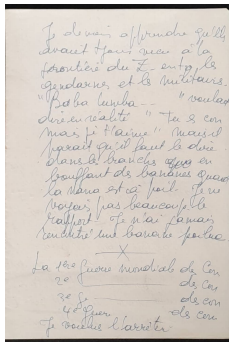 Je devais apprendre qu'elle
avait toujours vécu à la
frontière du Z. entre les
gendarmes et les militaires
"Baba lumba -- " voulait
dire en réalité "Tu es con
mais je t'aime" mais il
paraît qu'il faut le dire
dans les branches en
bouffant des bananes quand
la nana est à poil. Je ne
voyais pas beaucoup le
rapport. Je n'ai jamais
rencontré une banane poilue
X
La 1ère Guerre mondiale des Con
2e des con
3e Ge des con
4e Guer des con
Je voulus l'arrêter